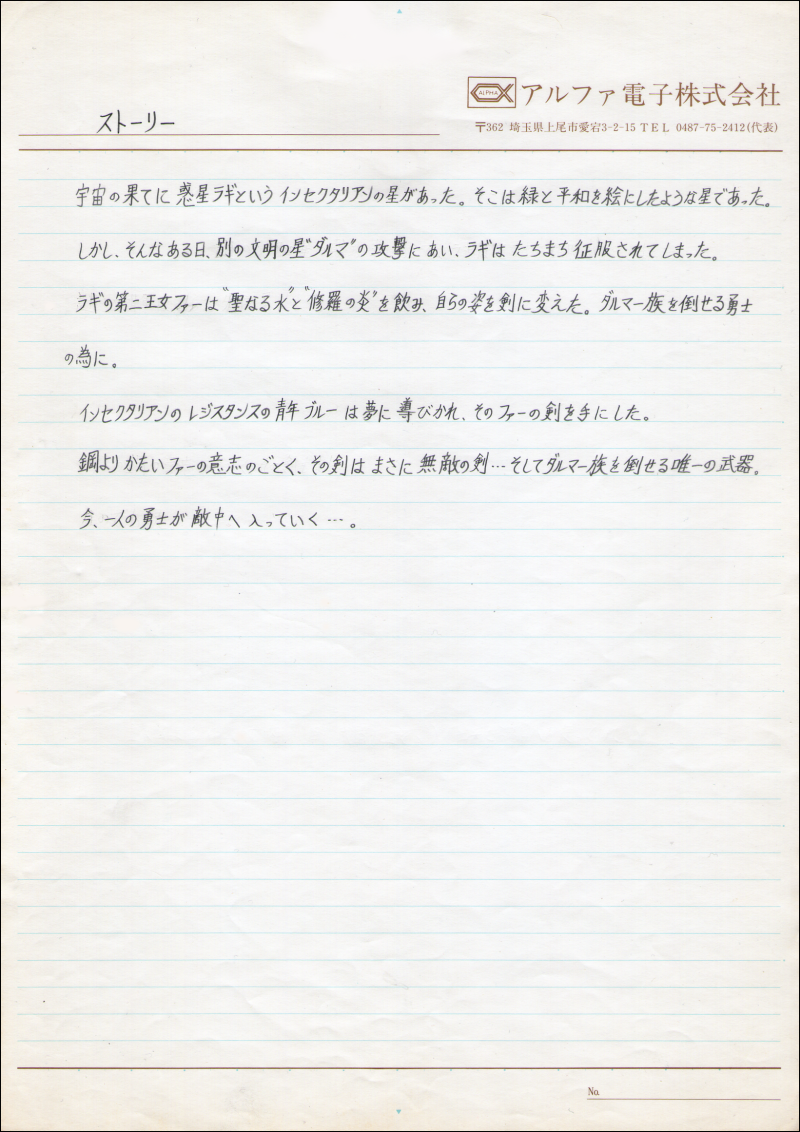 ALPHA アルファ電子株式会社
ストーリー
〒362 埼玉県上尾市愛宕3-2-15 TEL 0487-75-2412(代表)
宇宙の果てに惑星ラギというインセクタリアンの星があった。そこは緑と平和を絵にしたような星であった。
しかし、そんなある日、別の文明の星"ダルマ"の攻撃にあい、ラギはたちまち征服されてしまった。
ラギの第二王女ファーは"聖なる水"と"修羅の炎"を飲み、自らの姿を剣に変えた。ダルマー族を倒せる勇士
の為に。
インセクタリアンのレジスタンスの青年ブルーは夢に導びかれ、そのファーの剣を手にした。
鋼よりかたいファーの意志のごとく、その剣はまさに無敵の剣…そしてダルマー族を倒せる唯一の武器。
今、一人の勇士が敵中へ入っていく…。
No.